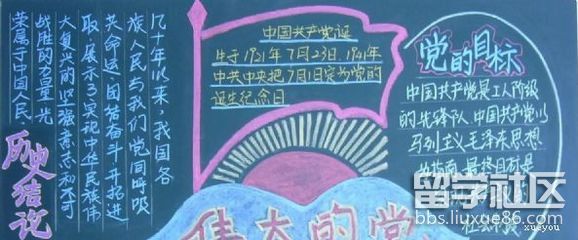 几十年以来，我国各
族人民与我们党同呼吸
共命运，团结奋斗，开拓进
取，展示了实现中华民族伟
大复兴的坚强意志和不可
战胜的力量，光
荣属于中国人民
历史结论
中国共产党诞
生于1921年7月23日，1941年
中共中央把7月1日定为党的
诞生纪念日
伟大的党
党的目标
中国共产党是工人阶级
的先锋队，中国共产党以
马列主义毛泽东思想
为指南，最终目标是
社会
留学社区
bbs.liuxue86.com
xueyou